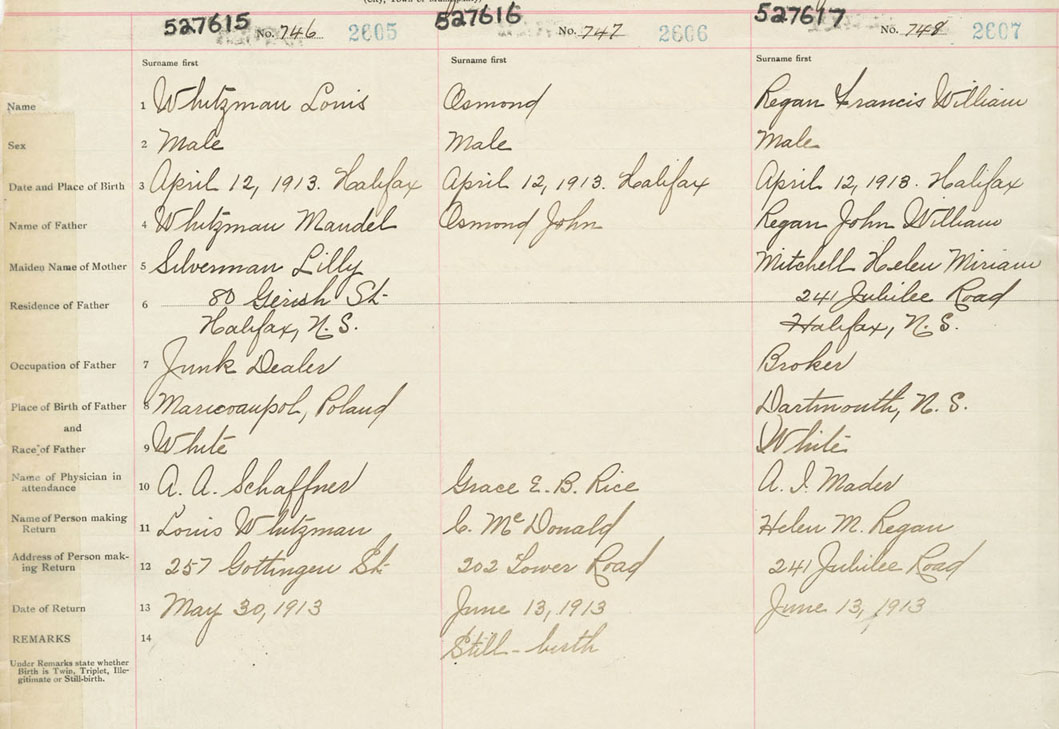 (City, Town or Municipality)
527615 No. 746 2605
527616 No. 747 2606
527617 No. 748 2607
Surname first Surname first Surname first
Name 1 Whitzman Louis Osmond Regan Francis William
Sex 2 Male Male Male
Date and Place of Birth 3 April 12, 1913. Halifax April 12, 1913. Halifax April 12, 1913. Halifax
Name of Father 4 Whitzman Mandel Osmond John Regan John William
Maiden Name of Mother 5 Silverman Lilly Mitchell Helen Miriam
Residence of Father 6 80 Gerish St. 241 Jubilee Road
Halifax, N. S. Halifax, N. S.
Occupation of Father 7 Junk Dealer Broker
Place of Birth of Father 8 Maricoaupol, Poland Dartmouth, N. S.
and
Race of Father 9 White White
Name of Physician in attendance 10 A. A. Schaffner Grace E. B. Rice A. I. Mader
Name of Person making Return 11 Louis Whitzman C. McDonald Helen M. Regan
Address of Person making Return 12 257 Gottingen St. 202 Lower Road 241 Jubilee Road
Date of Return 13 May 30, 1913 June 13, 1913 June 13, 1913
REMARKS 14 Still-birth
Under Remarks state whether
Birth is Twin, Triplet, Ille-
gitimate or Still-birth.